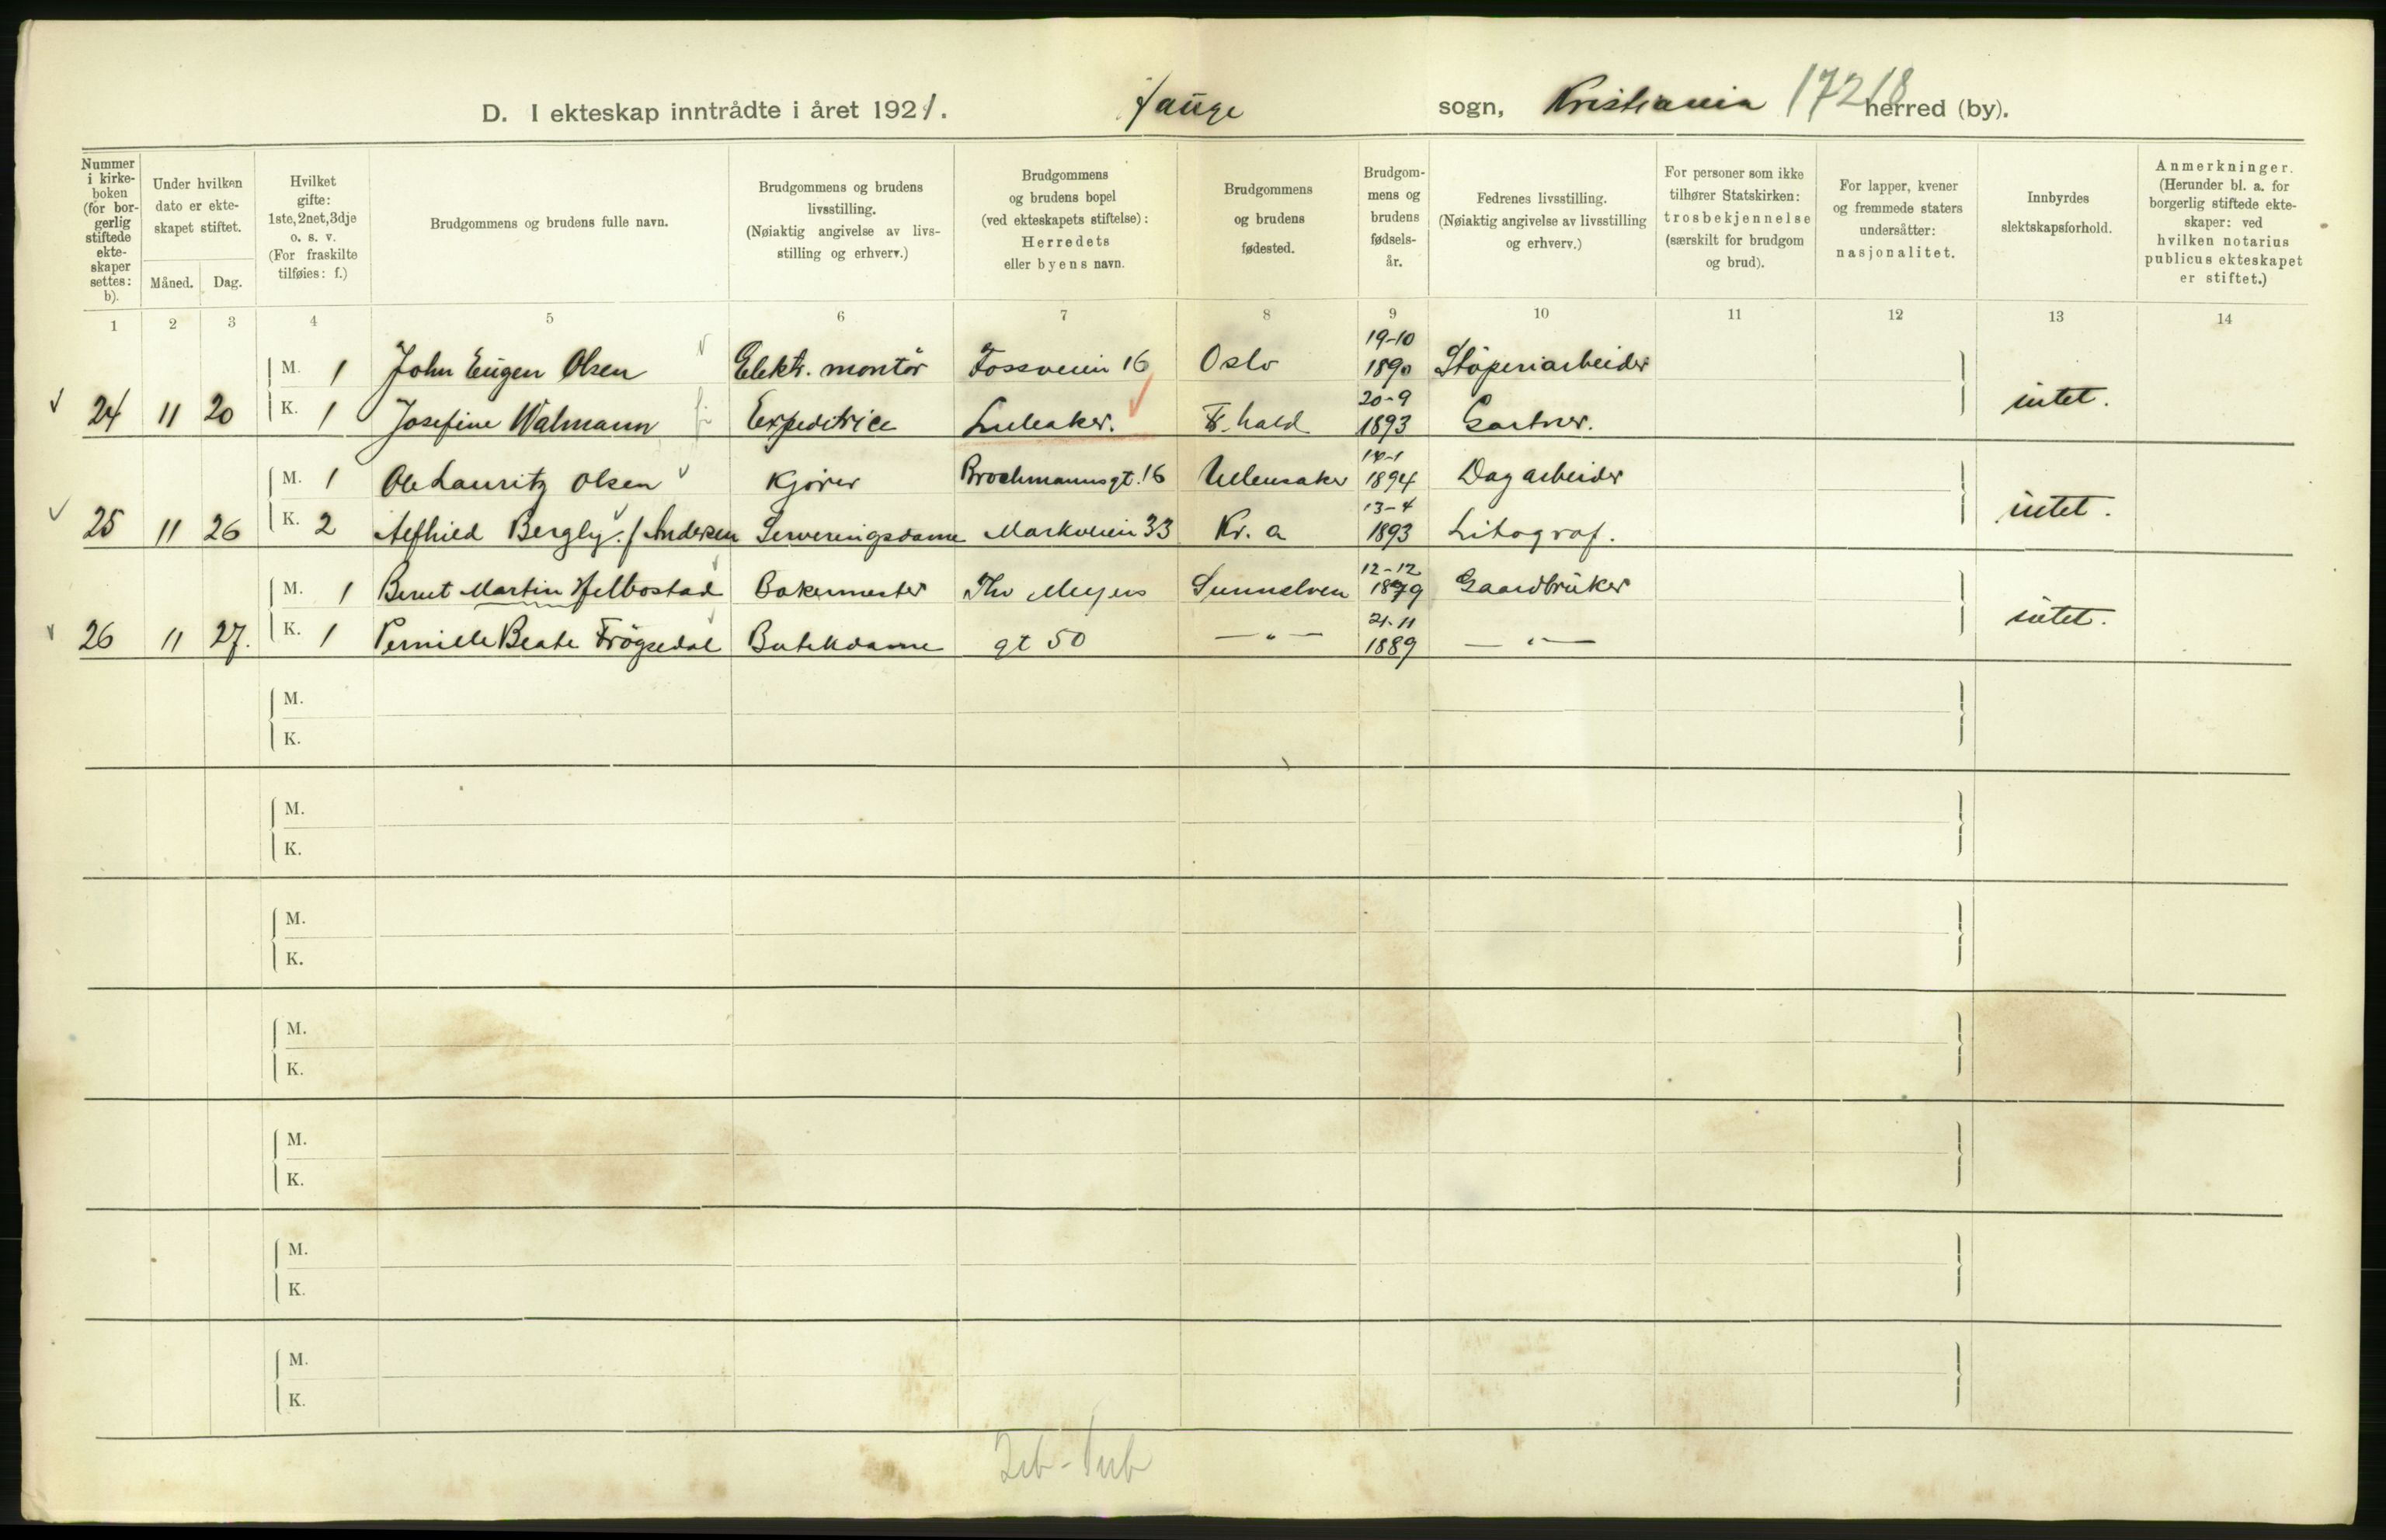 D. I ekteskap inntrådte i året 1921. Hauge sogn, Kristiania 17218 herred (by).
Nummer i kirkeboken (for borgerlig stiftede ekteskaper settes: b).
Under hvilken dato er ekteskapet stiftet.
Måned. Dag.
Hvilket gifte: 1ste, 2net, 3dje o. s. v. (For fraskilte tilføies: f.)
Brudgommens og brudens fulle navn.
Brudgommens og brudens livsstilling. (Nøiaktig angivelse av livsstilling og erhverv.)
Brudgommens og brudens bopel (ved ekteskapets stiftelse): Herredets eller byens navn.
Brudgommens og brudens fødested.
Brudgommens og brudens fødselsår.
Fedrenes livsstilling. (Nøiaktig angivelse av livsstilling og erhverv.)
For personer som ikke tilhører Statskirken: trosbekjennelse (særskilt for brudgom og brud).
For lapper, kvener og fremmede staters undersåtter: nasjonalitet.
Innbyrdes slektskapsforhold.
Anmerkninger. (Herunder bl. a. for borgerlig stiftede ekteskaper: ved hvilken notarius publicus ekteskapet er stiftet.)
1 2 3 4 5 6 7 8 9 10 11 12 13 14
M. 1 John Eugen Olsen Elektr. montör Fossveien 16 Oslo 19-10 1890 Støperiarbeider
24 11 20 K. 1 Josefine Walmann Expeditrice Lilleaker. Fr.hald 20-9 1893 Gartner. intet.
M. 1 Ole Lauritz Olsen Kjører Brochmannsgt. 16 Ullensaker 1894 Dagarbeider
25 11 26 K. 2 Bergly f. Andersen Serveringsdame Markveien 33 Kr. a 13-4 1893 Litograf. intet.
M. 1 Bernt Martin Hellbostad Bakermester Thv Meyers Sunnelven 12-12 1879 Gaardbruker
26 11 27. K. 1 Pernille Beate Frögsedal Butikdame gt 50 — " — 21-11 1889 — " — intet.
M.
K.
M.
K.
M.
K.
M.
K.
M.
K.
M.
K.
M.
K.